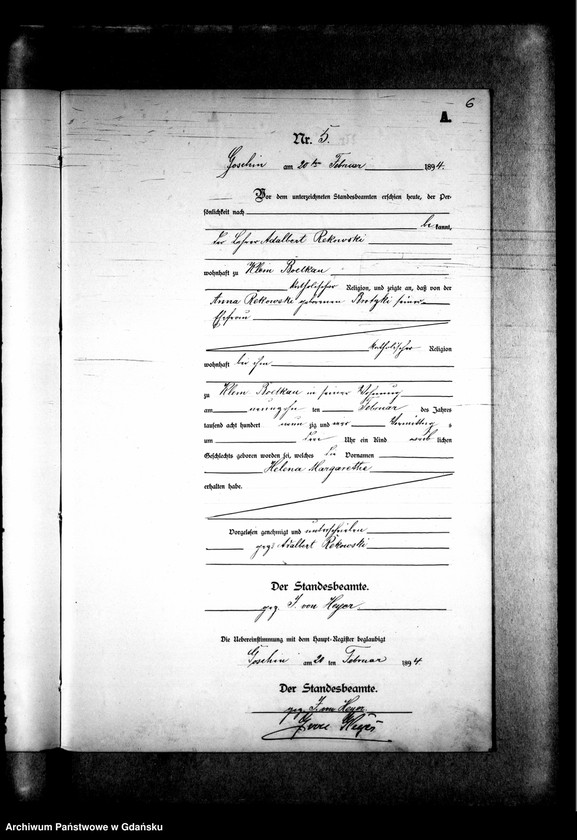 6
A.
Nr. 5.
Goschin am 20ten Februar 1894.
Vor dem unterzeichneten Standesbeamten erschien heute, der Per-
sönlichkeit nach
be kannt,
der Lehrer Adalbert Rekowski
wohnhaft zu Klein Boelkau
katholischer Religion, und zeigte an, daß von der
Anna Rekowski geborenen seiner
Ehefrau
katholischer Religion
wohnhaft bei ihm
zu Klein Boelkau in seiner Wohnung
am neunzehn ten Februar des Jahres
tausend acht hundert neun zig und vier Vormittag s
um Uhr ein Kind weib lichen
Geschlechts geboren worden sei, welches die Vornamen
Helena Margarethe
erhalten habe.
Vorgelesen, genehmigt und unterschrieben
gez. Adalbert Rekowski
Der Standesbeamte.
gez. J. von Heyer
Die Uebereinstimmung mit dem Haupt-Register beglaubigt
Goschin am 20 ten Februar 1894
Der Standesbeamte.
gez. J. von Heyer
J von Heyer
Archiwum Państwowe w Gdańsku